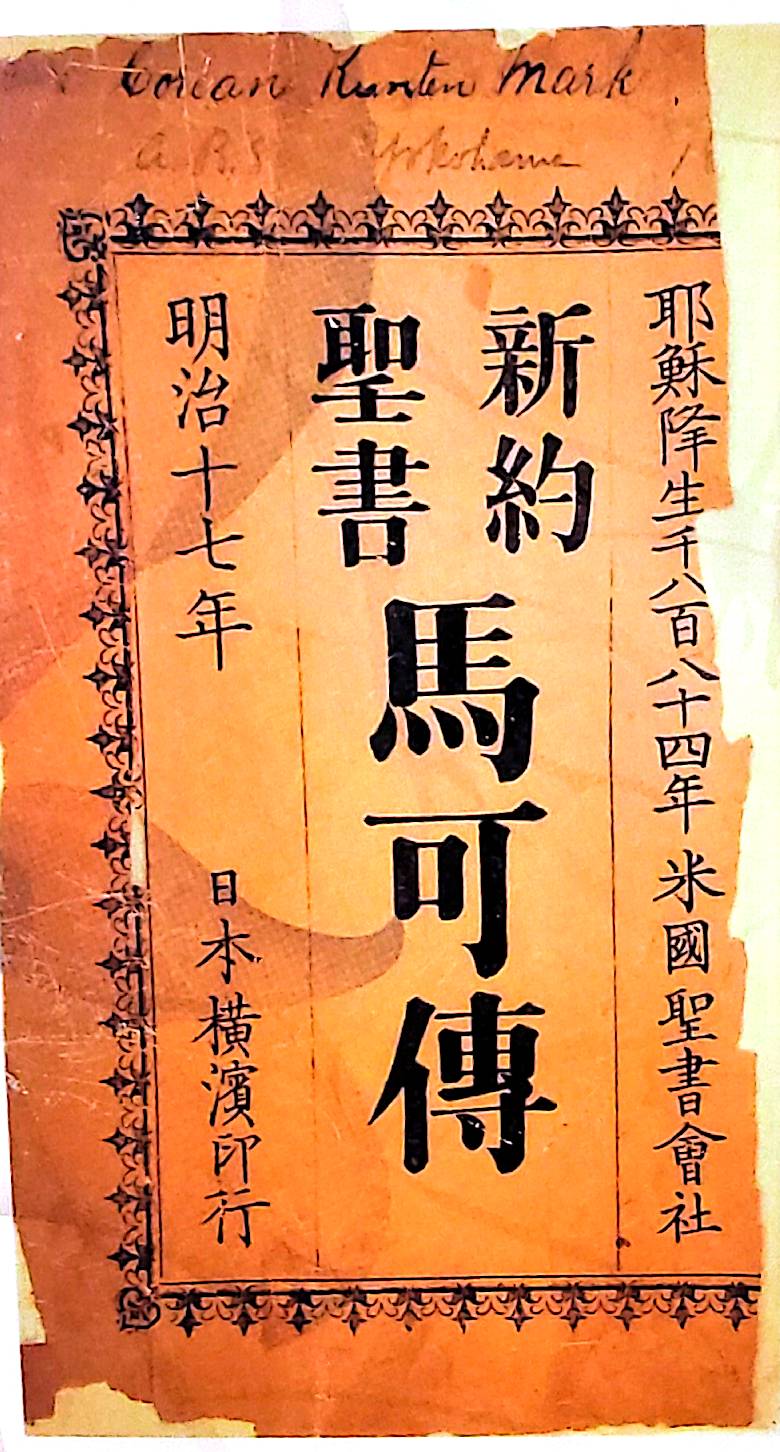 Corean Kunten Mark
A. B. S. Yokohama
耶穌降生千八百八十四年 米國聖書會社
新約
聖書
馬可傳
明治十七年 日本橫濱印行